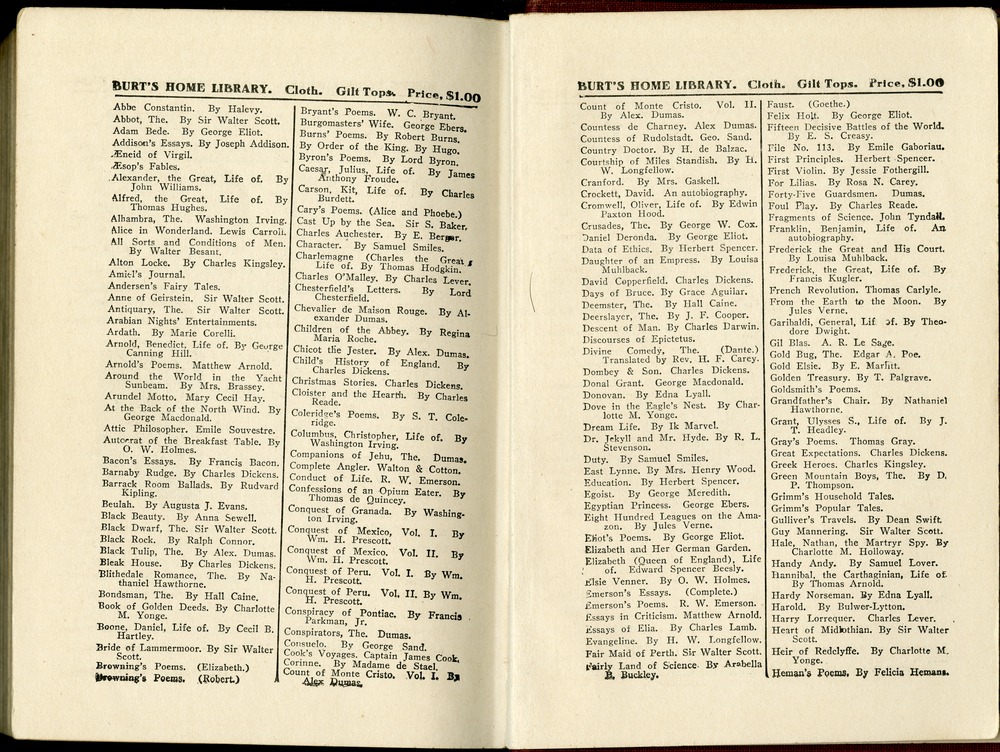 BURT'S HOME LIBRARY. Cloth. Gilt Tops. Price, $1.00
Abbe Constantin. By Halevy.
Abbot, The. By Sir Walter Scott.
Adam Bede. By George Eliot.
Addison's Essays. By Joseph Addison.
Æneid of Virgil.
Æsop's Fables.
Alexander, the Great, Life of. By
John Williams.
Alfred, the Great, Life of. By
Thomas Hughes.
Alhambra, The. Washington Irving.
Alice in Wonderland. Lewis Carroll.
All Sorts and Conditions of Men.
By Walter Besant.
Alton Locke. By Charles Kingsley.
Amiel's Journal.
Andersen's Fairy Tales.
Anne of Geirstein. Sir Walter Scott.
Antiquary, The. Sir Walter Scott.
Arabian Nights' Entertainments.
Ardath. By Marie Corelli.
Arnold, Benedict, Life of. By George
Canning Hill.
Arnold's Poems. Matthew Arnold.
Around the World in the Yacht
Sunbeam. By Mrs. Brassey.
Arundel Motto. Mary Cecil Hay.
At the Back of the North Wind. By
George Macdonald.
Attic Philosopher. Emile Souvestre.
Autocrat of the Breakfast Table. By
O. W. Holmes.
Bacon's Essays. By Francis Bacon.
Barnaby Rudge. By Charles Dickens.
Barrack Room Ballads. By Rudyard
Kipling.
Beulah. By Augusta J. Evans.
Black Beauty. By Anna Sewell.
Black Dwarf, The. Sir Walter Scott.
Black Rock. By Ralph Connor.
Black Tulip, The. By Alex. Dumas.
Bleak House. By Charles Dickens.
Blithedale Romance, The. By Na-
thaniel Hawthorne.
Bondsman, The. By Hall Caine.
Book of Golden Deeds. By Charlotte
M. Yonge.
Boone, Daniel, Life of. By Cecil B.
Hartley.
Bride of Lammermoor. By Sir Walter
Scott.
Browning's Poems. (Elizabeth.)
Browning's Poems. (Robert.)
Bryant's Poems. W. C. Bryant.
Burgomasters' Wife. George Ebers.
Burns' Poems. By Robert Burns.
By Order of the King. By Hugo.
Byron's Poems. By Lord Byron.
Caesar, Julius, Life of. By James
Anthony Froude.
Carson, Kit, Life of. By Charles
Burdett.
Cary's Poems. (Alice and Phoebe.)
Cast Up by the Sea. Sir S. Baker,
Charles Auchester. By E. Berger.
Character. By Samuel Smiles.
Charlemagne (Charles the Great
Life of. By Thomas Hodgkin.
Charles O'Malley. By Charles Lever.
Chesterfield's Letters. By Lord
Chesterfield.
Chevalier de Maison Rouge. By Al-
exander Dumas.
Children of the Abbey. By Regina
Maria Roche.
Chicot the Jester. By Alex. Dumas.
Child's History of England. By
Charles Dickens.
Christmas Stories. Charles Dickens.
Cloister and the Hearth. By Charles
Reade.
Coleridge's Poems. By S. T. Cole-
ridge.
Columbus, Christopher, Life of. By
Washington Irving.
Companions of Jehu, The. Dumas.
Complete Angler. Walton & Cotton.
Conduct of Life. R. W. Emerson.
Confessions of an Opium Eater. By
Thomas de Quincey.
Conquest of Granada. By Washing-
ton Irving.
Conquest of Mexico, Vol. I. By
Wm. H. Prescott.
Conquest of Mexico. Vol. II. By
Wm. H. Prescott.
Conquest of Peru. Vol. I. By Wm.
H. Prescott.
Conquest of Peru. Vol. II. By Wm.
H. Prescott.
Conspiracy of Pontiac. By Francis
Parkman, Jr.
Conspirators, The. Dumas.
Consuelo. By George Sand.
Cook's Voyages. Captain James Cook,
Corinne. By Madame de Stael.
Count of Monte Cristo. Vol. I. By
Alex Dumas.
BURT'S HOME LIBRARY. Cloth. Gilt Tops. Price, $1.00
Count of Monte Cristo. Vol. II.
By Alex. Dumas.
Countess de Charney. Alex Dumas.
Countess of Rudolstadt. Geo. Sand.
Country Doctor. By H. de Balzac.
Courtship of Miles Standish. By H.
W. Longfellow.
Cranford. By Mrs. Gaskell.
Crockett, David. An autobiography.
Cromwell, Oliver, Life of. By Edwin
Paxton Hood.
Crusades, The. By George W. Cox.
Daniel Deronda. By George Eliot.
Data of Ethics. By Herbert Spencer.
Daughter of an Empress. By Louisa
Muhlback.
David Copperfield. Charles Dickens.
Days of Bruce. By Grace Aguilar.
Deemster, The. By Hall Caine.
Deerslayer, The. By J. F. Cooper.
Descent of Man. By Charles Darwin.
Discourses of Epictetus.
Divine Comedy, The. (Dante.)
Translated by Rev. H. F. Carey.
Dombey & Son. Charles Dickens.
Donal Grant. George Macdonald.
Donovan. By Edna Lyall.
Dove in the Eagle's Nest. By Char-
lotte M. Yonge.
Dream Life. By Ik Marvel.
Dr. Jekyll and Mr. Hyde. By R. L.
Stevenson.
Duty. By Samuel Smiles.
East Lynne. By Mrs. Henry Wood.
Education. By Herbert Spencer.
Egoist. By George Meredith.
Egyptian Princess. George Ebers.
Eight Hundred Leagues on the Ama-
zon. By Jules Verne.
Eliot's Poems. By George Eliot.
Elizabeth and Her German Garden.
Elizabeth (Queen of England), Life
of. Edward Spencer Beesly.
Elsie Venner. By O. W. Holmes.
Emerson's Essays. (Complete.)
Emerson's Poems. R. W. Emerson.
Essays in Criticism. Matthew Arnold.
Essays of Elia. By Charles Lamb.
Evangeline. By H. W. Longfellow.
Fair Maid of Perth. Sir Walter Scott.
Fairly Land of Science. By Arabella
B. Buckley.
Faust. (Goethe.)
Felix Holt. By George Eliot.
Fifteen Decisive Battles of the World.
By E. S. Creasy.
File No. 113. By Emile Gaboriau.
First Principles. Herbert Spencer.
First Violin. By Jessie Fothergill.
For Lilias. By Rosa N. Carey.
Forty-Five Guardsmen. Dumas.
Foul Play. By Charles Reade.
Fragments of Science. John Tyndall.
Franklin, Benjamin, Life of. An
autobiography.
Frederick the Great and His Court.
By Louisa Muhlback.
Frederick, the Great, Life of. By
Francis Kugler.
French Revolution. Thomas Carlyle.
From the Earth to the Moon. By
Jules Verne.
Garibaldi, General, Lif of. By Theo-
dore Dwight.
Gil Blas. A. R. Le Sage.
Gold Bug, The. Edgar A. Poe.
Gold Elsie. By E. Marlitt.
Golden Treasury. By T. Palgrave.
Goldsmith's Poems.
Grandfather's Chair. By Nathaniel
Hawthorne.
Grant, Ulysses S., Life of. By J.
T. Headley.
Gray's Poems. Thomas Gray.
Great Expectations. Charles Dickens.
Greek Heroes. Charles Kingsley.
Green Mountain Boys, The. By D.
P. Thompson.
Grimm's Household Tales.
Grimm's Popular Tales.
Gulliver's Travels. By Dean Swift.
Guy Mannering. Sir Walter Scott.
Hale, Nathan, the Martyr Spy. By
Charlotte M. Holloway.
Handy Andy. By Samuel Lover.
Hannibal, the Carthaginian, Life of.
By Thomas Arnold.
Hardy Norseman. By Edna Lyall.
Harold. By Bulwer-Lytton.
Harry Lorrequer. Charles Lever.
Heart of Midlothian. By Sir Walter
Scott.
Heir of Redclyffe. By Charlotte M.
Yonge.
Heman's Poems. By Felicia Hemans.